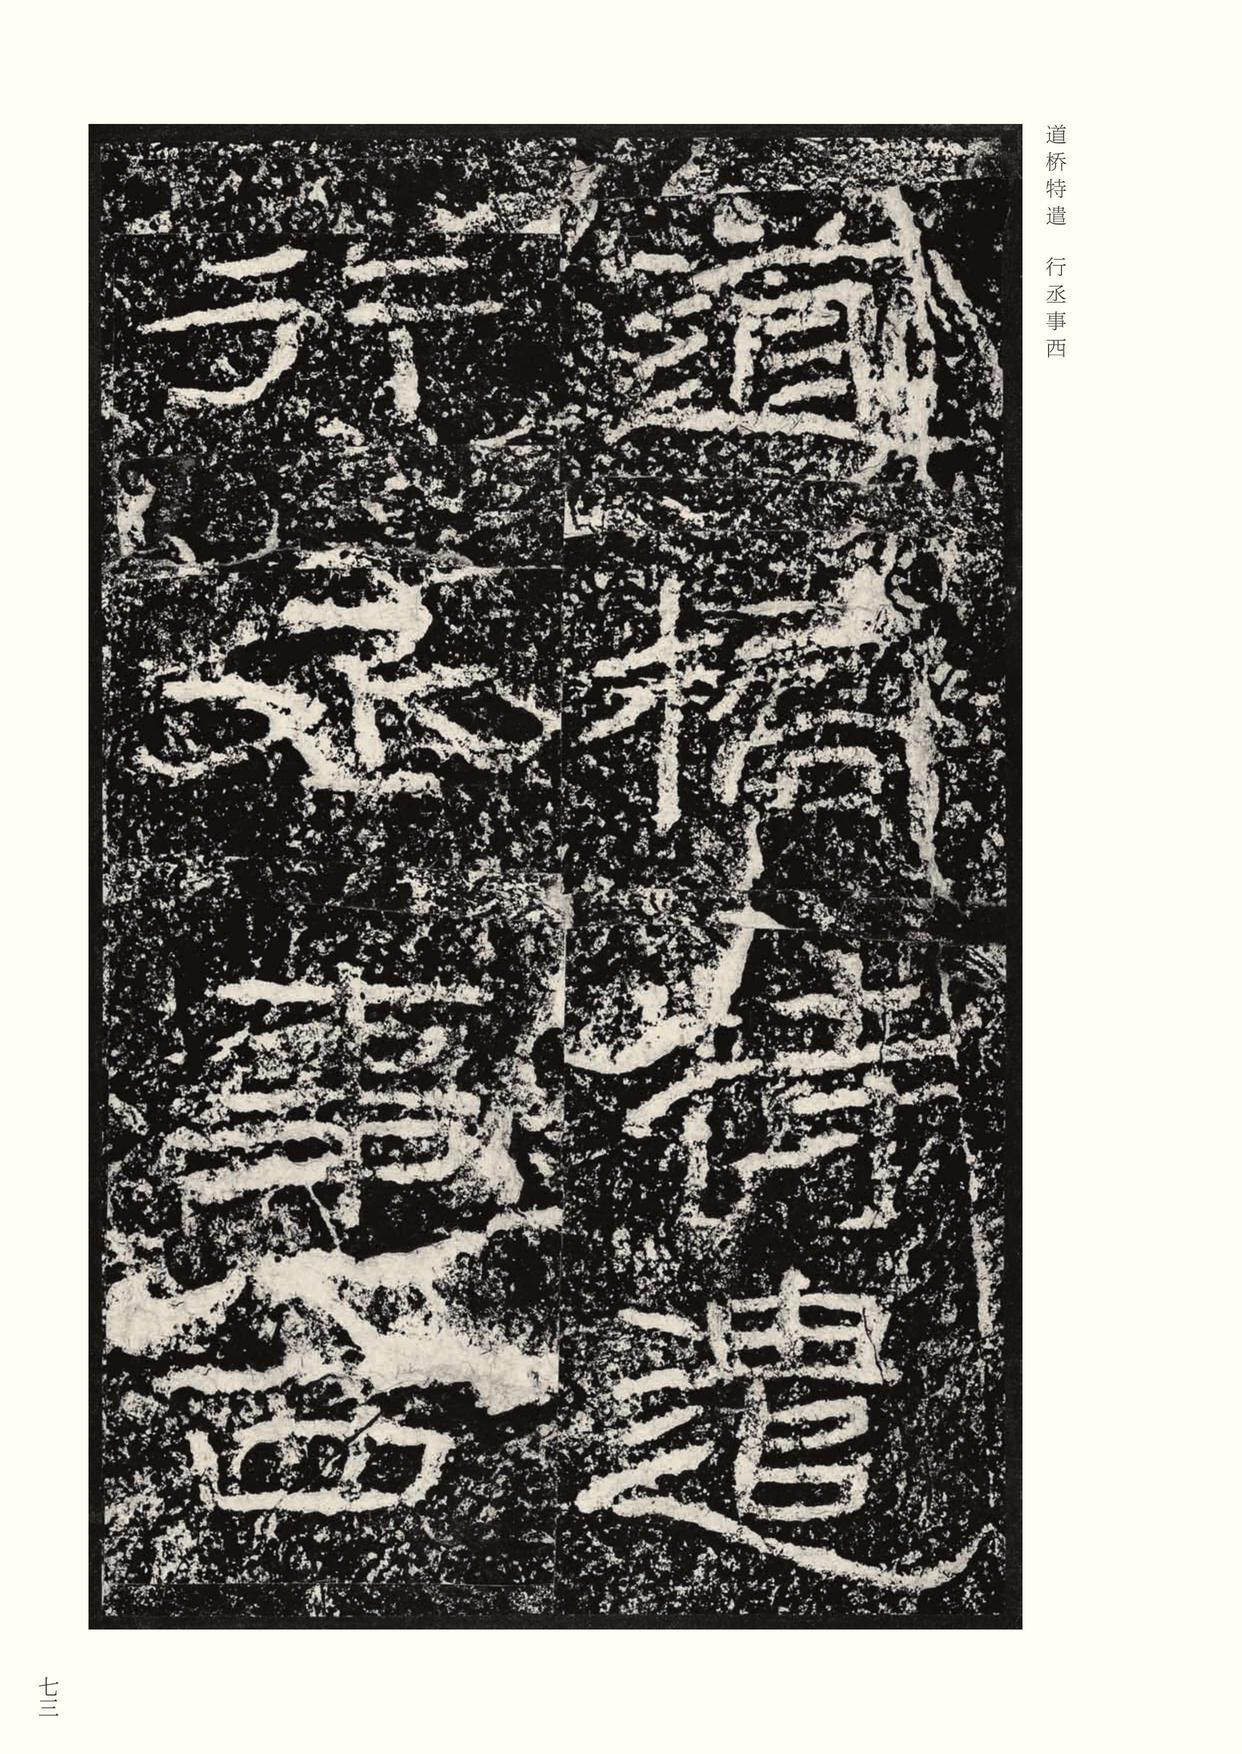 道桥特遣　行丞事西
道橋特遣
行丞事西
七三